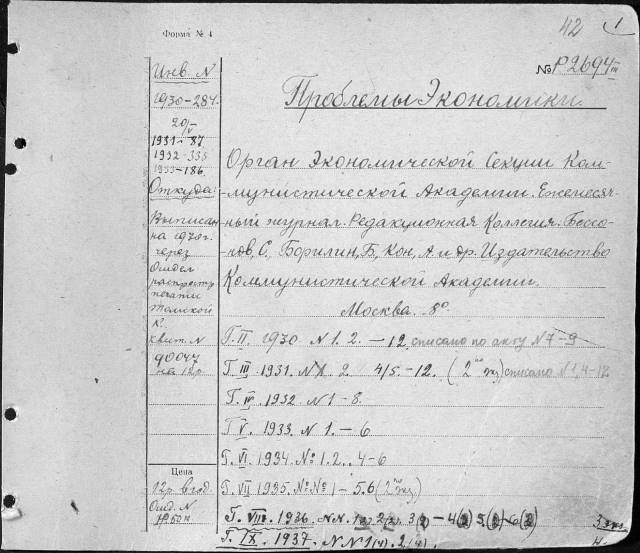 42 1
Форма № 4
№ P2694 III
Инв. N
1930-284.
20/V
1931-87
1932-335
1933-186.
Откуда:
Выписан
на 1930г.
через
Отдел
распростр
печати
Томской
к.
квит. N
90077
на 12р.
Цена
12р. в год.
Проблемы Экономики.
Орган Экономической Секции Ком-
-мунистической Академии. Ежемесяч-
-ный журнал. Редакционная Коллегия. Бессо-
-нов, С, Борилин, Б, Кон, А и др. Издательство
Коммунистической Академии.
Москва. 8°
Г. II. 1930 N 1. 2. – 12. списано по акту N 7-9
Г. III 1931. N 1. 2 4/5. -12. (2ой экз) списано N 1, 4-12
Г. IV 1932 N 1-8.
Г V. 1933. N 1. – 6
Г. VI. 1934. №1. 2.. 4-6
Г. VII 1935. №№ 1 – 5.6 (2ой экз.)
Г. VIII. 1936. N.N. 1 2 3(2) – 4(2) 5(2)-6(2) 3 экз.
Г. IX. 1937. N N 1(4). 2(4).